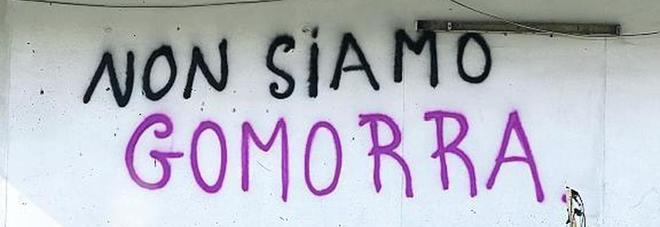 NON SiAMO
GOMORRA.